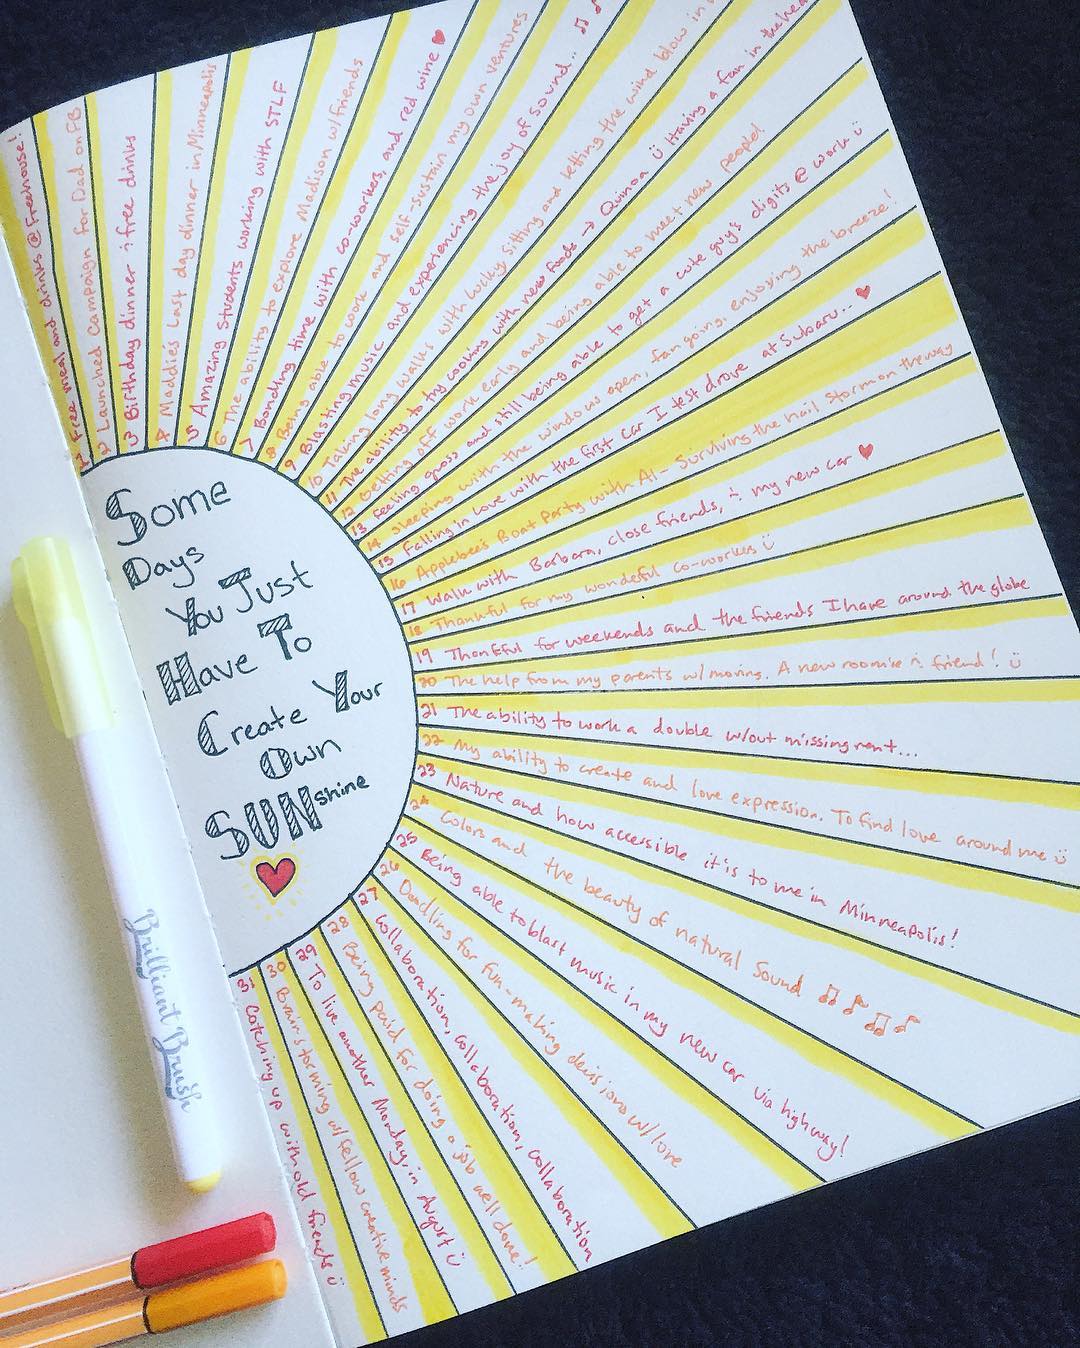 Some
Days
You Just
Have To
Create Your
Own
SUNshine
1 Free meal and drinks @ Freehouse!
2 Launched Campaign for Dad on FB
3 Birthday dinner & free drinks
4 Maddie's Last day dinner in Minneapolis
5 Amazing Students working with STLF
6 The ability to explore Madison w/friends
7 Bonding time with co-workers, and red wine
8 Being able to work and self-sustain my own ventures
9 Blasting music and experiencing the joy of sound...
10 Taking long walks with Lucky, sitting and letting the wind blow in
11 The ability to try cooking with new foods → Quinoa ü Having a fan in the heat
12 Getting off work early and being able to meet new people!
13 Feeling gross and still being able to get a cute guy's digits @ work ü
14 Sleeping with the windows open, fan going, enjoying the breeze!
15 Falling in Love with the first car I test drove at Subaru...
16 Applebee's Boat Party with Al - Surviving the hail storm on the way
17 Walk with Barbara, close friends, & my new car
18 Thankful for my wondeful co-workers ü
19 Thankful for weekends and the friends I have around the globe
20 The help from my parents w/ moving. A new roomie & friend! ü
21 The ability to work a double w/out missing rent...
22 My ability to create and love expression. To find love around me ü
23 Nature and how accessible it is to me in Minneapolis!
24 Colors and the beauty of natural sound
25 Being able to blast music in my new car via highway!
26 Doodling for fun-making decisions w/ love
27 Collaboration, collaboration, collaboration
28 Being paid for doing a job well done!
29 To live another Monday, in August ü
30 Brainstorming w/ fellow creative minds
31 Catching up with old friends ü
Brilliant Brush